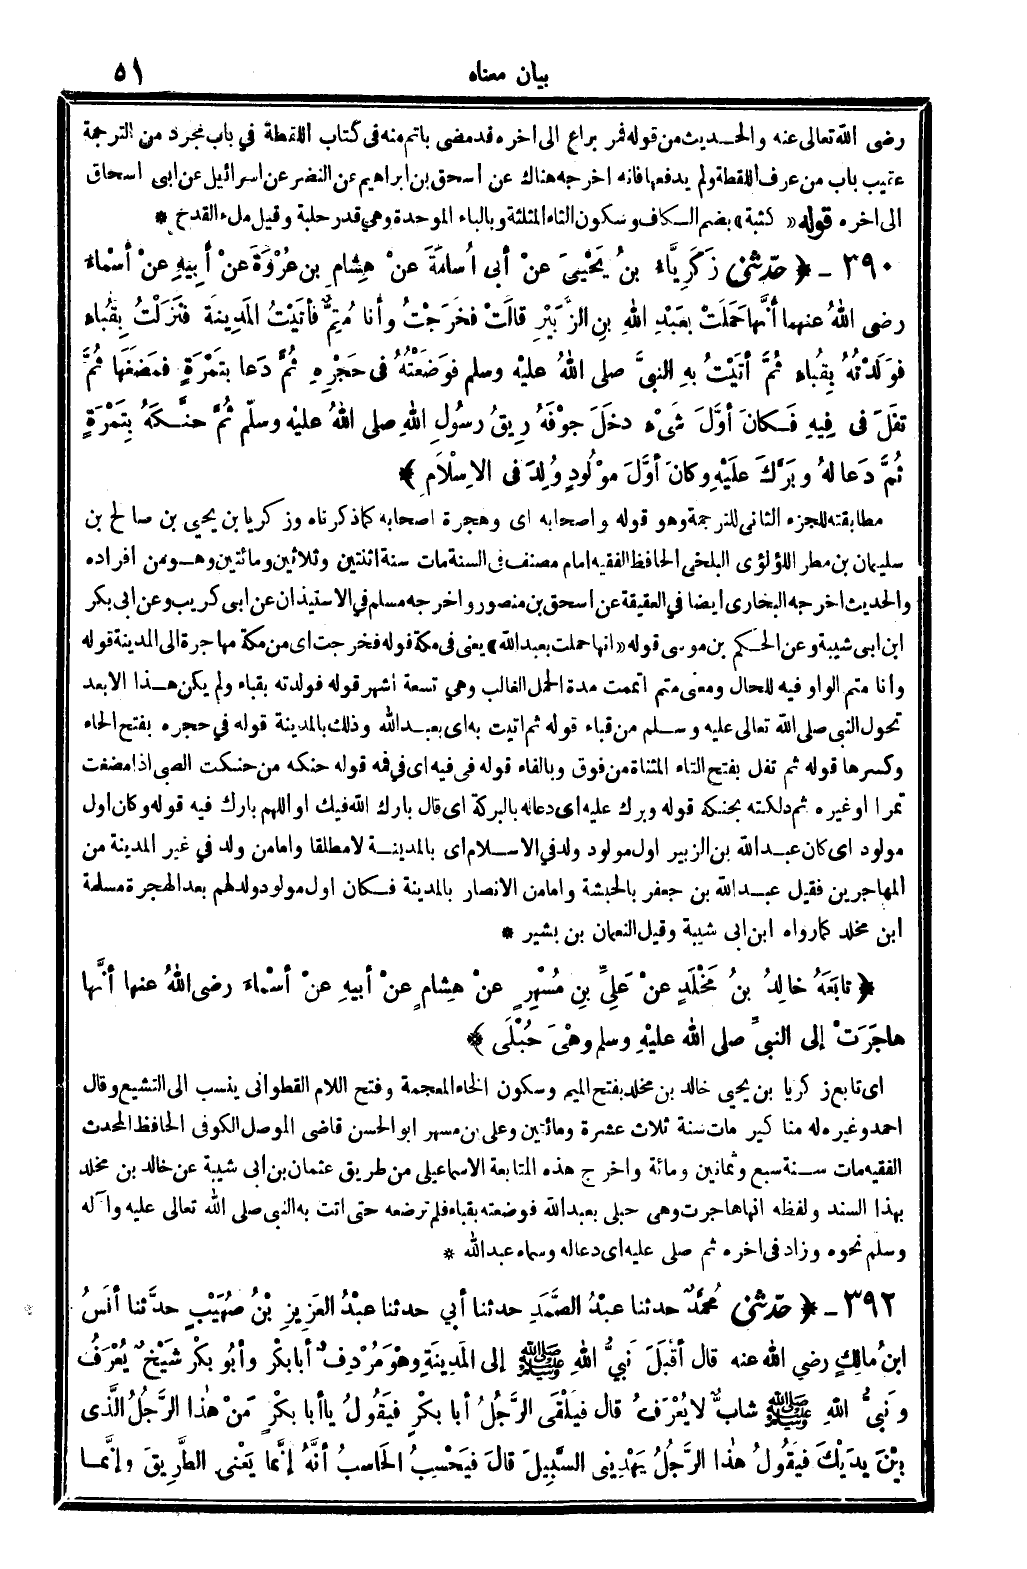 بيان معناه ٥١
رضى الله تعالى عنه والحديث من قوله فمر براع الى اخره قد مضى باتم منه فى كتاب اللقطة في باب مجرد من الترجمة
عقيب باب من عرف اللقطة ولم يدفعها فانه اخرجه هناك عن اسحق بن ابراهيم عن النضر عن اسرائيل عن ابى اسحاق
الى اخره قوله «كثبة» بضم الكاف وسكون الثاء المثلثة وبالباء الموحدة وهي قدر حلبة وقيل ملء القدح *
٣٩٠ - ﴿ حدّثنى زَكَرِيَّاء بنُ يَحْيىَ عنْ أبى أُسامَةَ عنْ هِشامِ بنِ عُرْوَةَ عنْ أَبِيهِ عنْ أسْماءَ
رضى اللهُ عنهما أنَّها حَمَلَتْ بعَبْدِ اللهِ بنِ الزُّبَيْرِ قالَتْ فَخَرَجْتُ وأنا مُتِمٌّ فأتَيْتُ المَدِينَةَ فنَزَلْتُ بِقُباءٍ
فوَلَدْتُهُ بِقُباءٍ ثُمَّ أتَيْتُ بهِ النبىَّ صلى اللهُ عليْه وسلم فوَضَعْتُهُ فى حَجْرِهِ ثُمَّ دَعا بتَمْرَةٍ فمَضَغَها ثُمَّ
تفَلَ فى فِيهِ فَكانَ أوَّلَ شَىْءٍ دخَلَ جوْفَهُ رِيقُ رسُولِ اللهِ صلى اللهُ عليْه وسلّم ثُمَّ حنَّكَهُ بِتَمْرَةٍ
ثُمَّ دَعا لهُ وبَرَّكَ علَيْهِ وكانَ أوَّلَ موْلُودٍ وُلِدَ فى الاِسْلاَمِ ﴾
مطابقته للجزء الثانى للترجمة وهو قوله واصحابه اى وهجرة اصحابه كما ذكرناه وزكريا بن يحيى بن صالح بن
سليمان بن مطر اللؤلؤى البلخى الحافظ الفقيه امام مصنف فى السنة مات سنة اثنتين وثلاثين ومائتين وهو من افراده
والحديث اخرجه البخارى ايضا في العقيقة عن اسحق بن منصور واخرجه مسلم في الاستيذان عن ابى كريب وعن ابى بكر
ابن ابى شيبة وعن الحكم بن موسى قوله «انها حملت بعبد الله» يعنى فى مكة قوله فخرجت اى من مكة مهاجرة الى المدينة قوله
وأنا متم الواو فيه للحال ومعنى متم اتممت مدة الحمل الغالب وهي تسعة اشهر قوله فولدته بقباء ولم يكن هذا الا بعد
تحول النبى صلى الله تعالى عليه وسلم من قباء قوله ثم اتيت به اى بعبد الله وذلك بالمدينة قوله في حجره بفتح الحاء
وكسرها قوله ثم تفل بفتح التاء المثناة من فوق وبالفاء قوله فى فيه اى فى فمه قوله حنكه من حنكت الصبى اذا مضغت
تمرا او غيره ثم دلكته بحنكه قوله وبرك عليه اى دعا له بالبركة اى قال بارك الله فيك او اللهم بارك فيه قوله وكان اول
مولود اى كان عبد الله بن الزبير اول مولود ولد في الاسلام اى بالمدينة لا مطلقا واما من ولد في غير المدينة من
المهاجرين فقيل عبد الله بن جعفر بالحبشة واما من الانصار بالمدينة فكان اول مولود ولد لهم بعد الهجرة مسلمة
ابن مخلد كما رواه ابن ابى شيبة وقيل النعمان بن بشير *
﴿ تابَعَهُ خالِدُ بنُ مَخْلَدٍ عنْ عَلِيِّ بنِ مُسْهِرٍ عنْ هِشامٍ عنْ أبيهِ عنْ أسْماءَ رضى اللهُ عنها أنَّها
هاجَرَتْ إلى النبىِّ صلى الله عليْهِ وسلم وهْىَ حُبْلَى ﴾
اى تابع زكريا بن يحيى خالد بن مخلد بفتح الميم وسكون الخاء المعجمة وفتح اللام القطوانى ينسب الى التشيع وقال
احمد وغيره له مناكير مات سنة ثلاث عشرة ومائتين وعلى بن مسهر ابو الحسن قاضى الموصل الكوفى الحافظ المحدث
الفقيه مات سنة سبع وثمانين ومائة واخرج هذه المتابعة الاسماعيلى من طريق عثمان بن ابى شيبة عن خالد بن مخلد
بهذا السند ولفظه انها هاجرت وهى حبلى بعبد الله فوضعته بقباء فلم ترضعه حتى اتت به النبى صلى الله تعالى عليه وآله
وسلم نحوه وزاد فى اخره ثم صلى عليه اى دعا له وسماه عبد الله *
٣٩٢ - ﴿ حدّثنى مُحَمَّدٌ حدثنا عبْدُ الصَّمَدِ حدثنا أبي حدثنا عبْدُ العَزِيزِ بْنُ صُهَيْبٍ حدَّثنا أنَسُ
ابنُ مالِكٍ رضي الله عنه قال أقْبَلَ نَبِيُّ اللهِ ﷺ إلى المَدِينَةِ وهْوَ مُرْدِفٌ أبا بكْرٍ وأبُو بكْرٍ شَيْخٌ يُعْرَفُ
ونَبِيُّ اللهِ ﷺ شابٌّ لا يُعْرَفُ قال فيَلْقَى الرَّجُلُ أبا بكْرٍ فيَقُولُ يا أبا بكْرٍ مَنْ هٰذا الرَّجُلُ الَّذى
بيْنَ يدَيْكَ فيَقُولُ هٰذا الرَّجُلُ يَهْدِينى السَّبِيلَ قالَ فيَحْسِبُ الحَاسِبُ أنَّهُ إنَّما يَعْنى الطَّرِيقَ وإنَّما